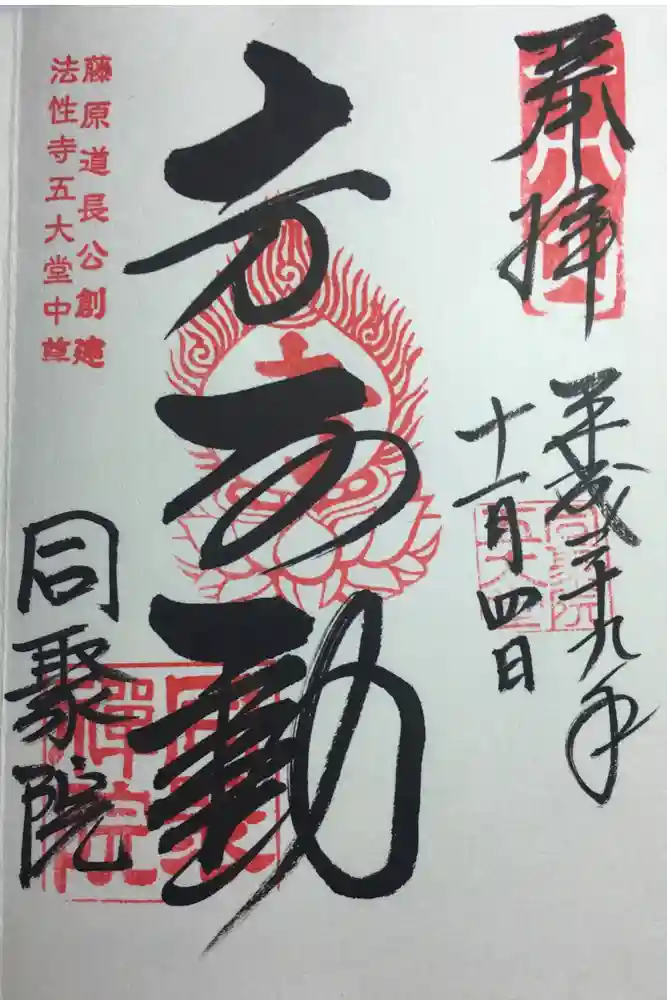 奉拝
平成二十九年
十一月四日
同聚院
五大堂
十万不動
藤原道長公創建
法性寺五大堂中尊
同聚院
同聚
禪院